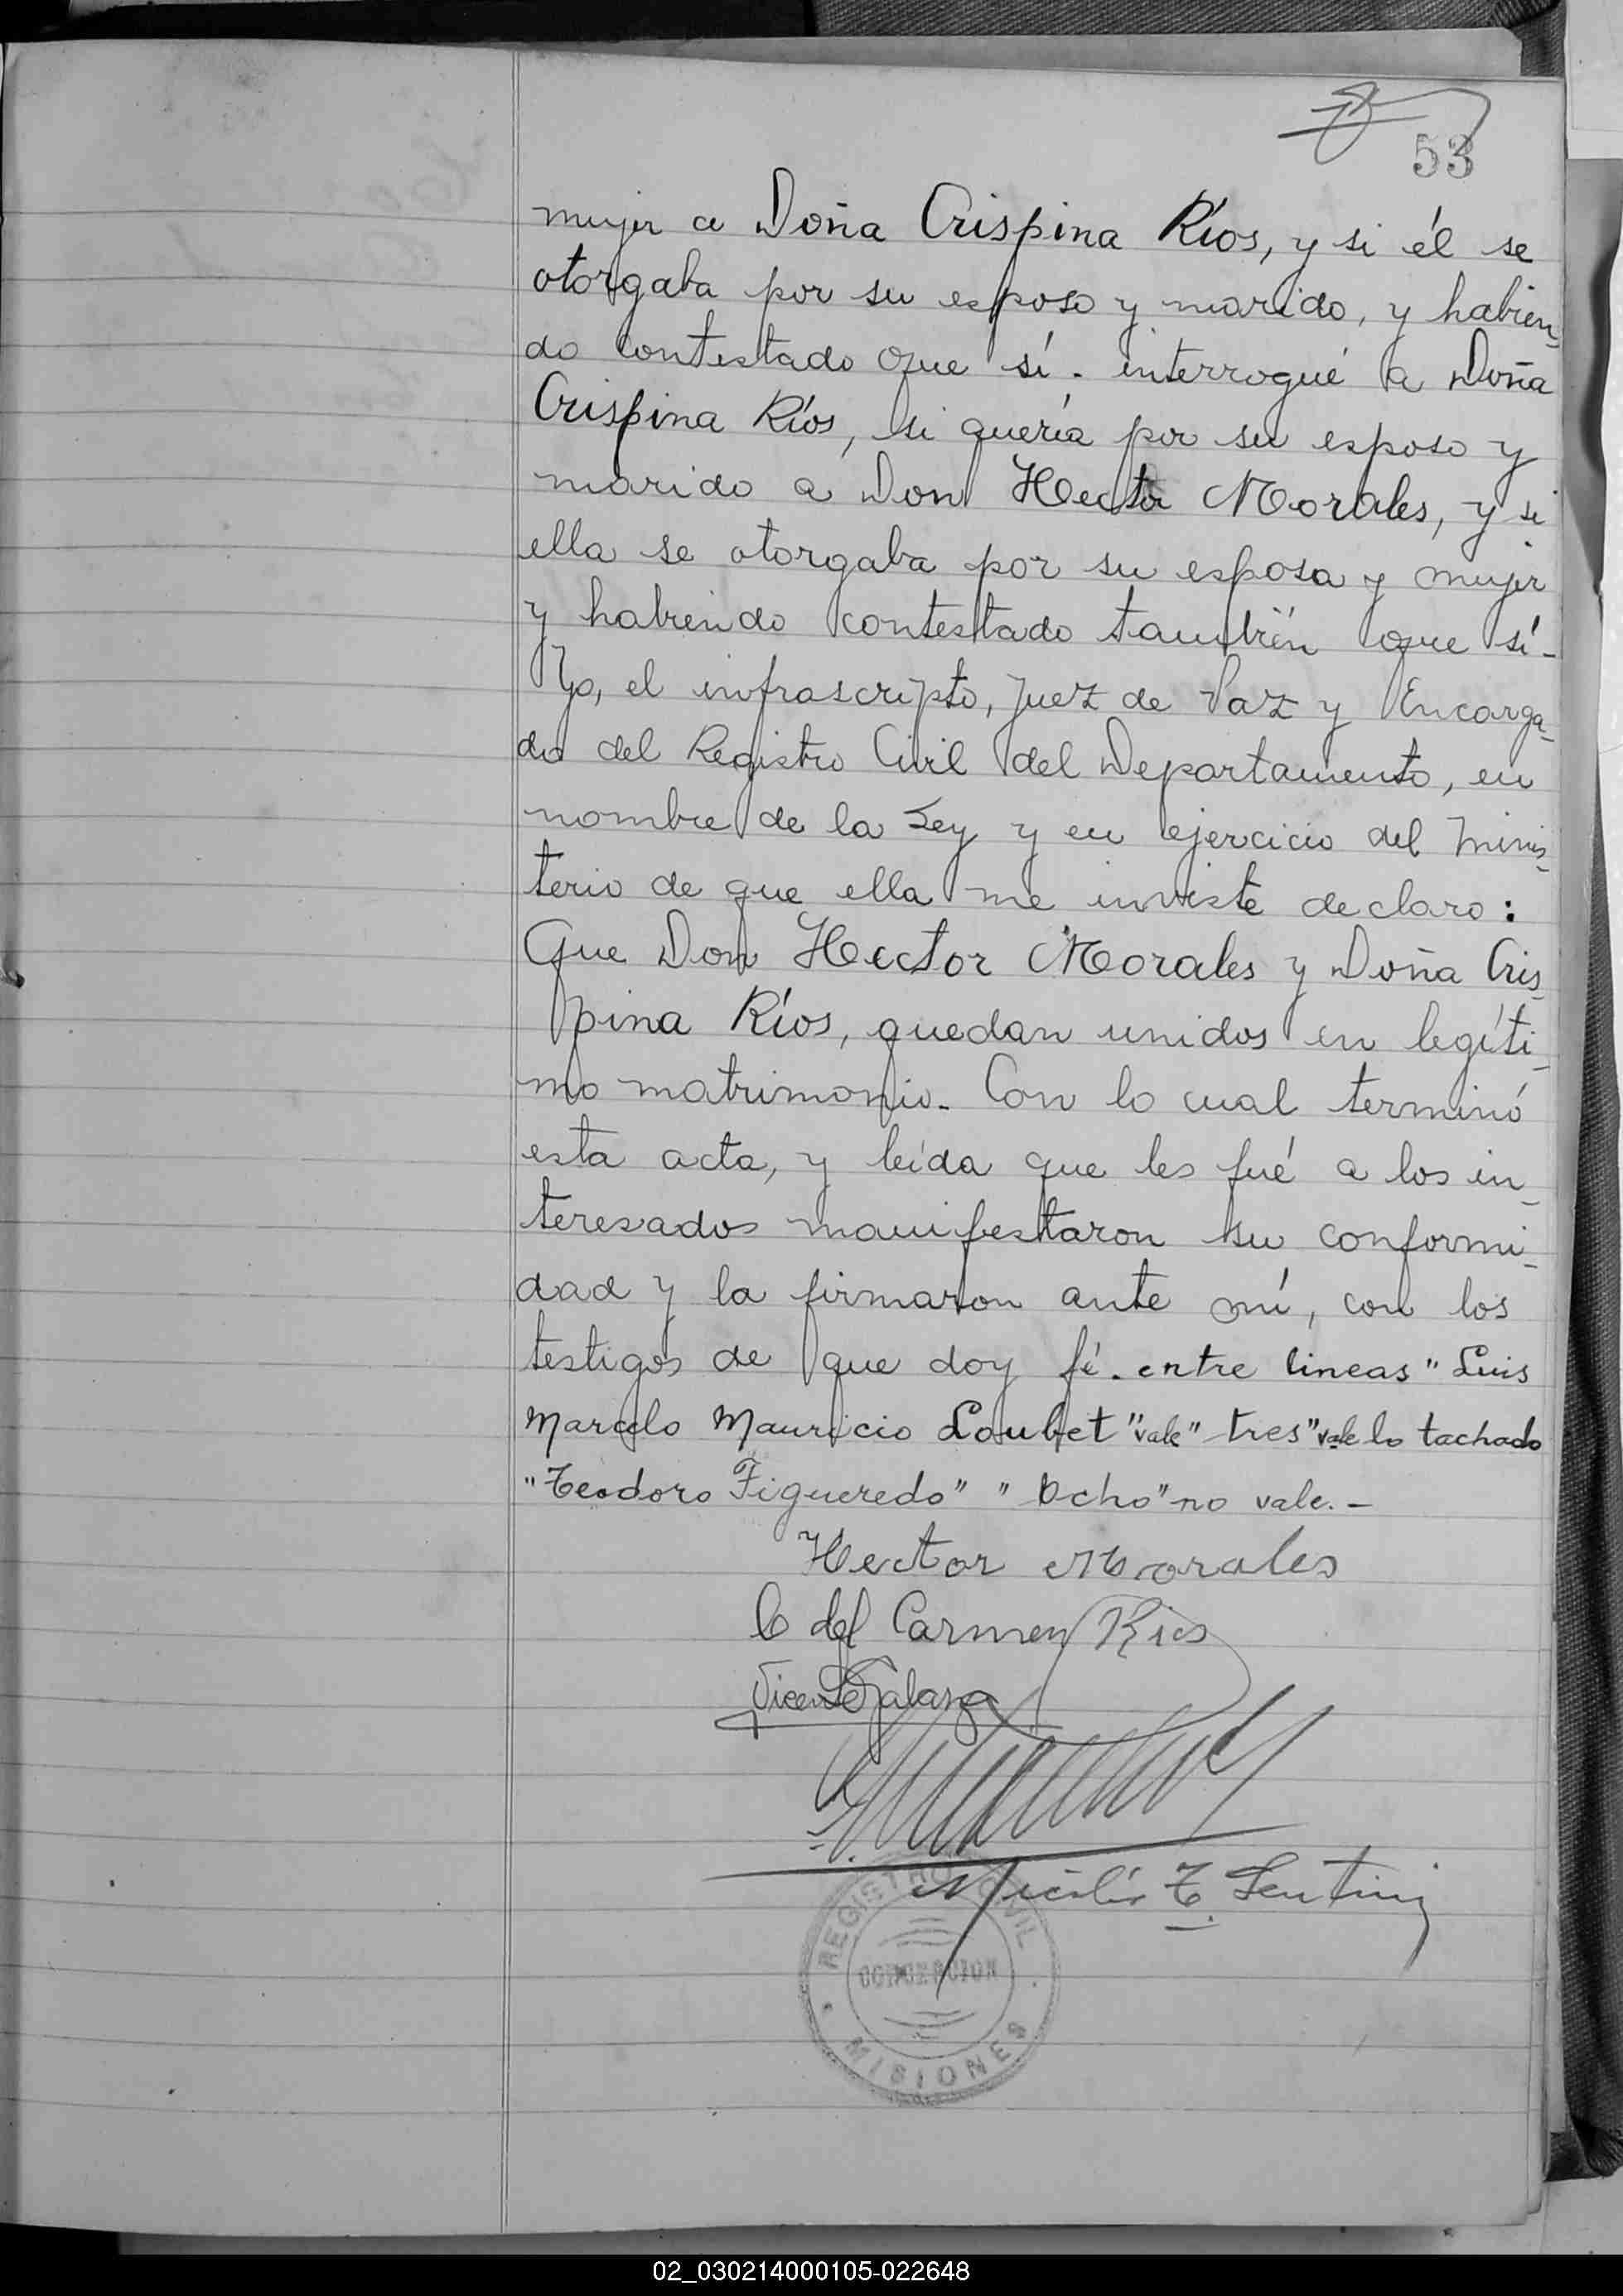 53
mujer a Doña Crispina Ríos, y si él se
otorgaba por su esposo y marido, y habien_
do contestado que sí. interrogué a Doña
Crispina Ríos, si quería por su esposo y
marido a Don Hector Morales, y si
ella se otorgaba por su esposa y mujer
y habiendo contestado también que sí-
Yo, el infrascripto, Juez de Paz y Encarga_
do del Registro Civil del Departamento, en
nombre de la Ley y en ejercicio del Minis_
terio de que ella me inviste declaro:
Que Don Hector Morales y Doña Cris_
pina Ríos, quedan unidos en legíti_
mo matrimonio. Con lo cual terminó
esta acta, y leída que les fué a los in_
teresados manifestaron su conformi_
dad y la firmaron ante mí, con los
testigos de que doy fé. entre lineas " Luis
Marcelo Mauricio Loubet "vale" tres "vale lo tachado
"Teodoro Figueredo" " Ocho" no vale. -
Hector Morales
C del Carmen Rios
Vicente
REGISTRO CIVIL
CONCEPCION
MISIONES
02_030214000105-022648